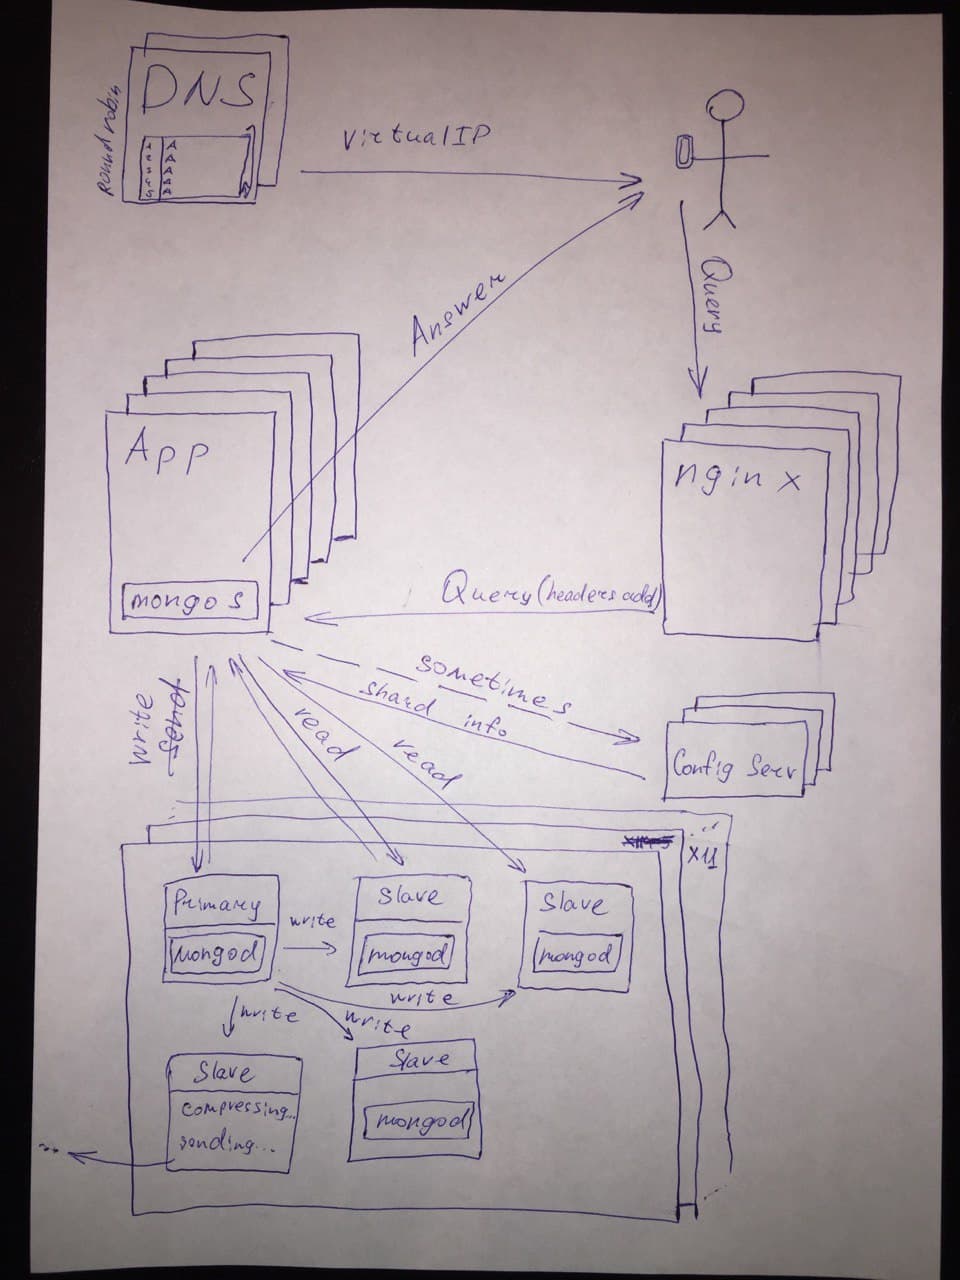 DNS
Round robin
A
A
A
A
A
Virtual IP
Query
Answer
App
mongos
nginx
Query (headers add)
sometimes
shard info
Config Serv
write
read
read
Primary
mongod
write
Slave
mongod
Slave
mongod
write
write
write
Slave
compressing...
sending...
Slave
mongod
...